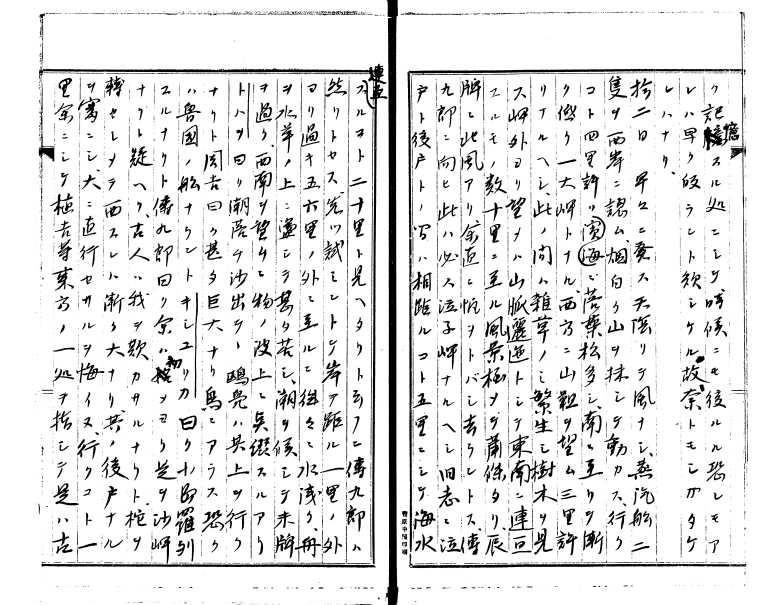 ク記憶スル処ニシテ時候ニモ後ルル恐レモア
レハ早ク皈ラント欲シケル故奈トモシガタケ
レハナリ
拾二日早々ニ発ス天陰リテ風ナシ蒸汽船二
隻ヲ西岸ニ認ム烟白ク山ヲ抹シテ動カス行ク
コト四里許リ濱海ニ落葉松多シ南ニ亙リヲ漸
ク低ク一大岬トナル西方ニ山ヲ望ム三里許
リナルヘシ此ノ間ハ雑草ノミ繁生シ樹木ヲ見
ス岬外ヨリ望メハ山脈邐迤トシテ東南ニ連亘
スルモノ数十里ニ至ル風景極メテ蕭條タリ辰
牌ニ此風アリ余直ニ帆ヲトバシ去ントス傳
九郎ニ向ヒ此ハ必ス泣子岬ナルヘシ旧志ニ泣
戸ト後戸トノ間ハ相距ルコト五里ニシテ海水
連亘
スルヿト二十里ト見ヘタクト云フニ傳九郎ハ
然リトセス先ツ試ミントテ岸ヲ距ル一里ノ外
ヨリ過キ五六里ノ外ニ至ルニ往々ニ水浅ク舟
ヲ水草ノ上ニ盪シテ甚タ苦シ潮ヲ候シテ未牌
ヲ過ク西南ヲ望ムニ物ノ波上ニ点綴スルアリ
トハヲ曰リ潮落テ沙出テ鴎鳧ハ其上ヲ行ク
ナリト周吉曰ク甚タ巨大ナリ鳥ニアラス恐ク
ハ魯國ノ船ナラントキシユリカ曰ク小島羅列
スルナリト傳九郎曰ク余ハ初メヨリ是ヲ沙岬
ナリト疑ヘリ古人ハ我ヲ欺カサルナリト柁ヲ
轉セシメテ西スレハ漸ク大ナリ其ノ後戸ナル
ヲ審ニシ大ニ直行セサルヲ悔イヌ行クコト一
里余ニシテ植吉等東方ノ一処ヲ指シテ是ハ古